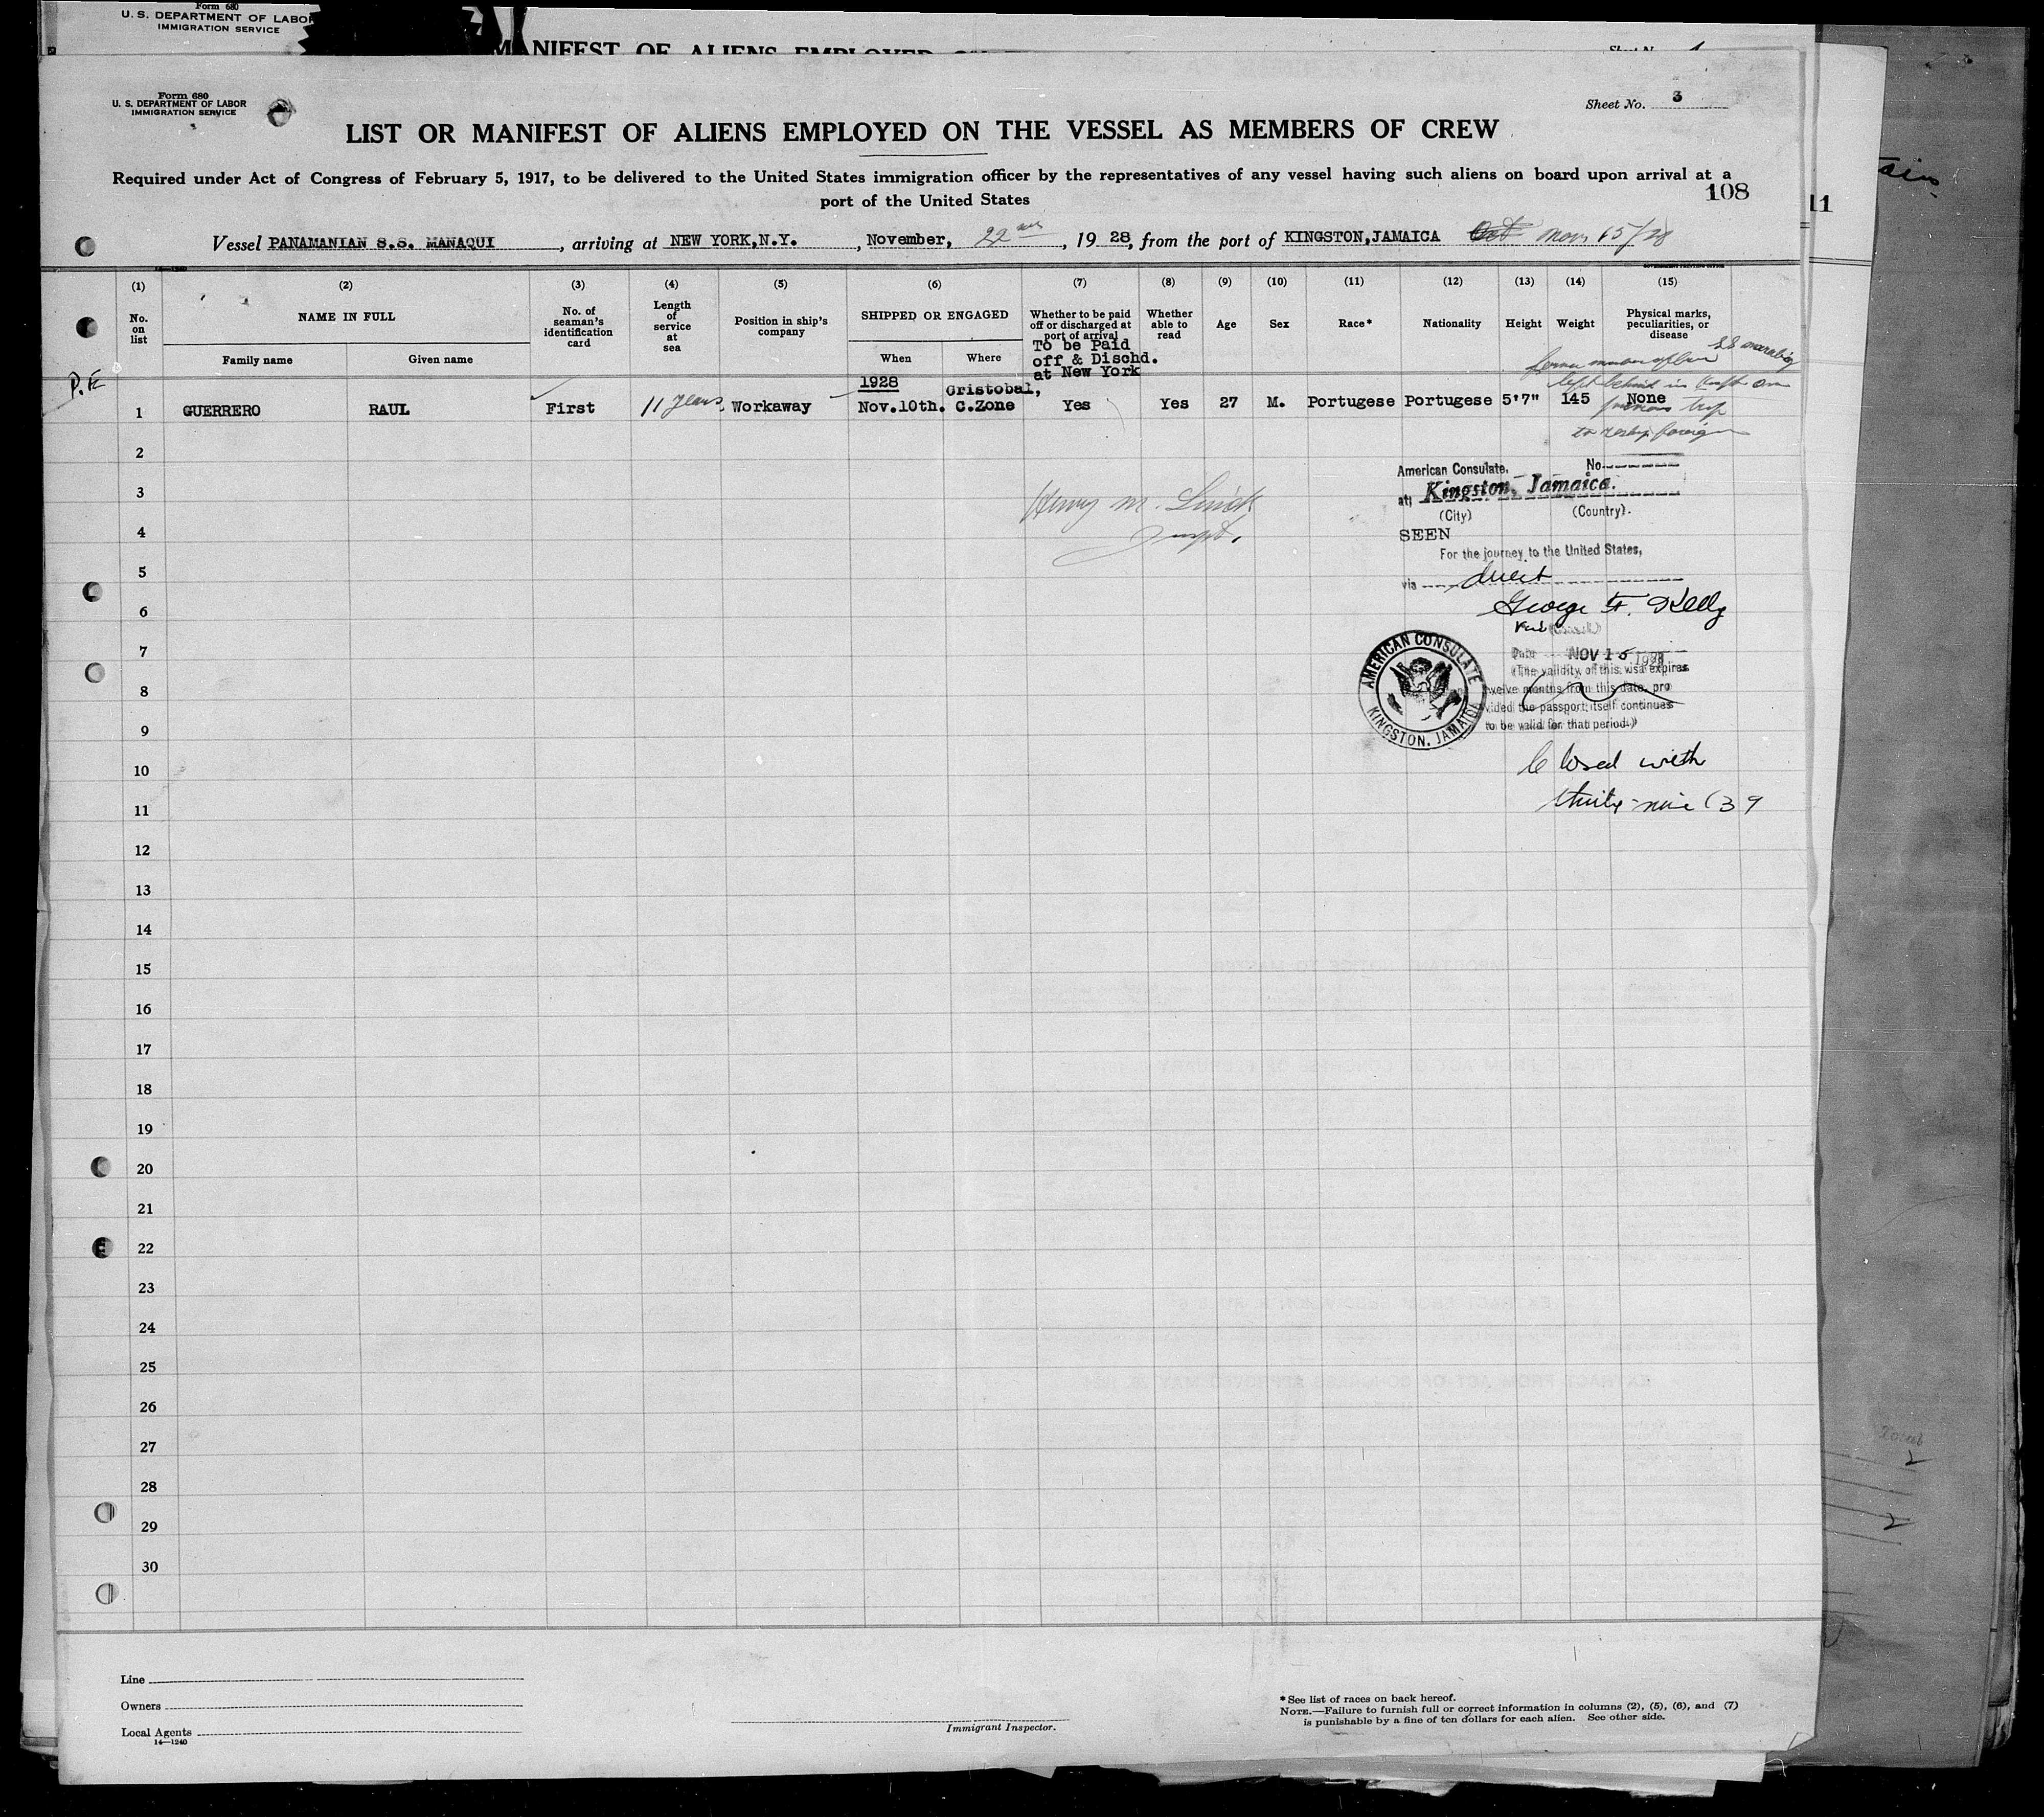 Form 680
U. S. DEPARTMENT OF LABOR
IMMIGRATION SERVICE
MANIFEST OF ALIENS EMPLOYED
Form 680
U. S. DEPARTMENT OF LABOR
IMMIGRATION SERVICE
Sheet No. 3
LIST OR MANIFEST OF ALIENS EMPLOYED ON THE VESSEL AS MEMBERS OF CREW
Required under Act of Congress of February 5, 1917, to be delivered to the United States immigration officer by the representatives of any vessel having such aliens on board upon arrival at a
port of the United States
108
11
Vessel PANAMANIAN S.S. MANAQUI, arriving at NEW YORK,N.Y., November, 22, 1928, from the port of KINGSTON,JAMAICA Oct Nov 15/28
(1) (2) (3) (4) (5) (6) (7) (8) (9) (10) (11) (12) (13) (14) (15)
No. on list
NAME IN FULL
Family name
Given name
No. of seaman's identification card
Length of service at sea
Position in ship's company
SHIPPED OR ENGAGED
When
Where
Whether to be paid off or discharged at port of arrival
To be Paid
off & Dischd.
at New York
Whether able to read
Age
Sex
Race*
Nationality
Height
Weight
Physical marks, peculiarities, or disease
left behind in
trip
foreign
P.E
1928
Cristobal,
1 GUERRERO RAUL First 11 years Workaway Nov.10th. C.Zone Yes Yes 27 M. Portugese Portugese 5'7" 145 None
2
3
4
5
6
7
8
9
10
11
12
13
14
15
16
17
18
19
20
21
22
23
24
25
26
27
28
29
30
Henry M.
Inspt.
American Consulate, No.
at Kingston, Jamaica.
(City) (Country).
SEEN
For the journey to the United States,
via direct
George F. Kelly
Date NOV 15 1928
(The validity of this visa expires
twelve months from this date, pro
vided the passport itself continues
to be valid for that period.)
AMERICAN CONSULATE
KINGSTON, JAMAICA
Closed with
thirty-nine (39
Line
Owners
Local Agents
14—1240
Immigrant Inspector.
* See list of races on back hereof.
NOTE.—Failure to furnish full or correct information in columns (2), (5), (6), and (7)
is punishable by a fine of ten dollars for each alien. See other side.